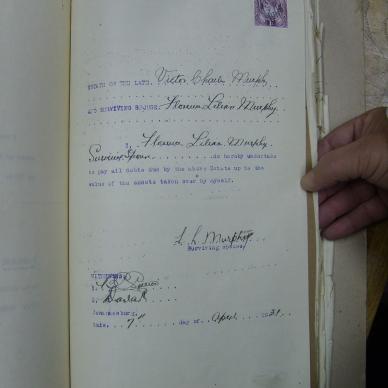 ESTATE OF THE LATE. Victor Charles Murphy
AND SURVIVING SPOUSE. Florence Lilian Murphy.
I, Florence Lilian Murphy.
Surviving Spouse do hereby undertake
to pay all debts due by the above Estate up to the
value of the assets taken over by myself.
L. L. Murphy
Surviving spouse.
WITNESSES:
1.
2.
Johannesburg.
Date. 7th day of April 1931.